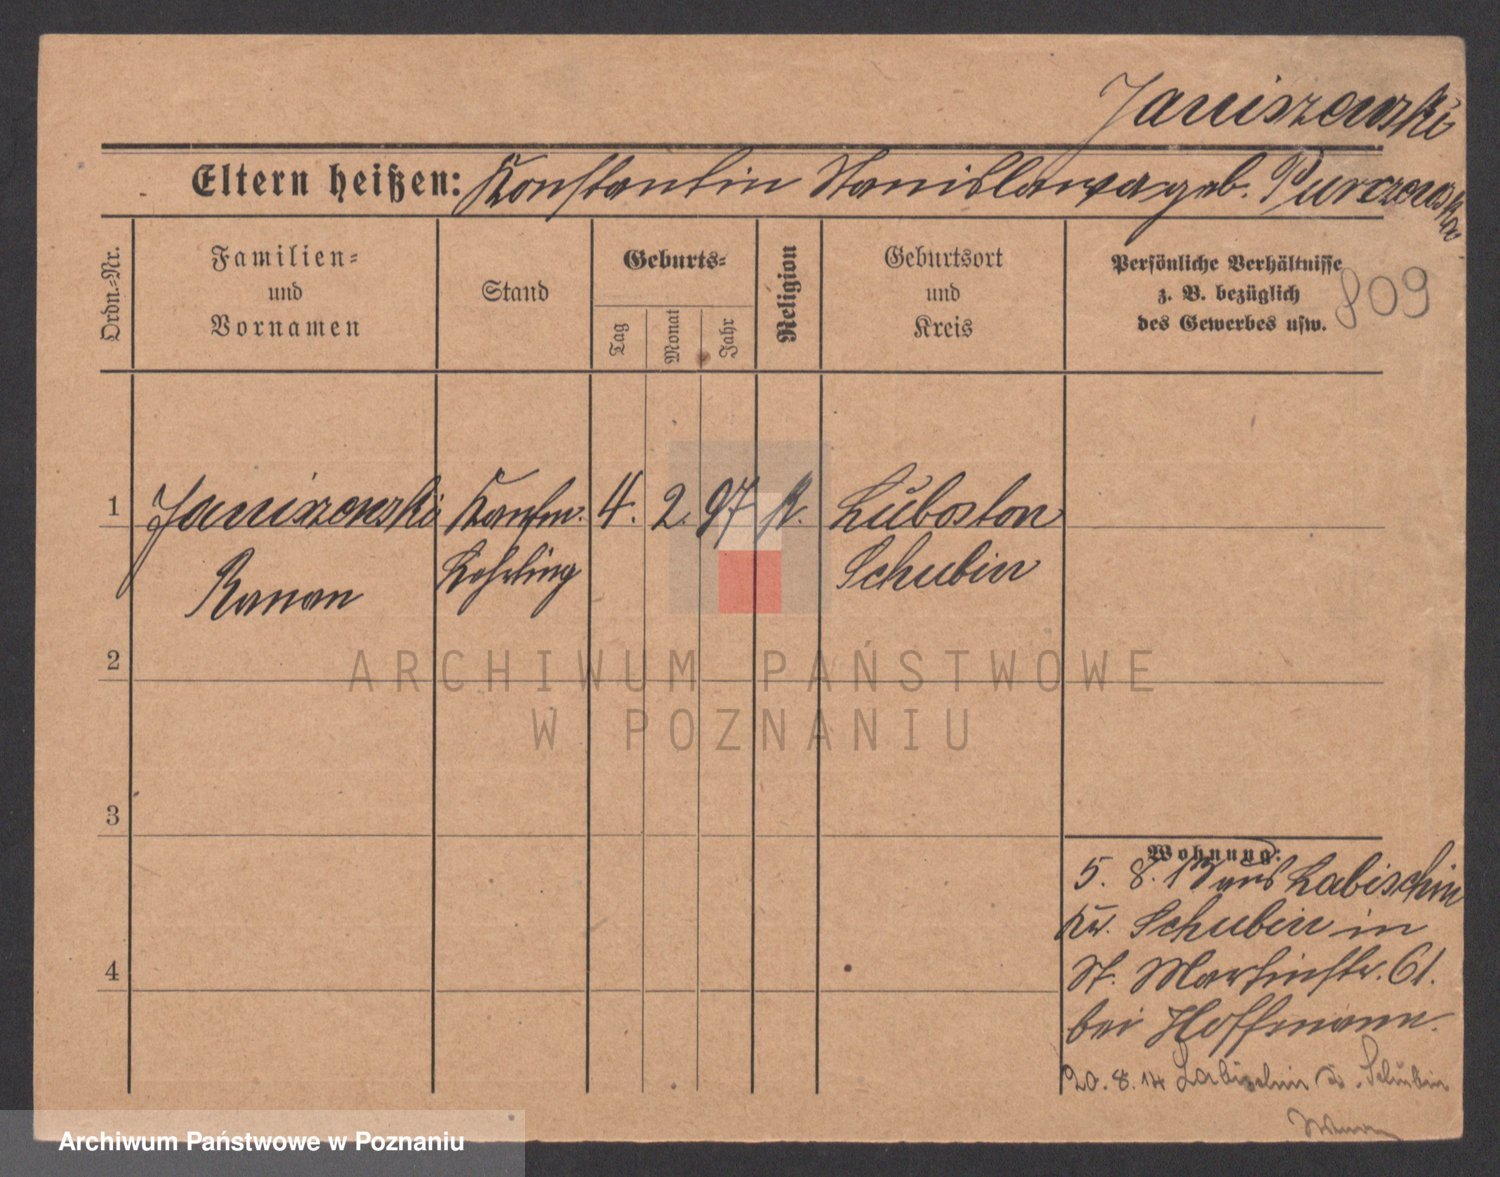 Janiszewski
Eltern heißen: Konstantin Stanislawa geb. Purczewska
Ordn.-Nr.
Familien-
und
Vornamen
Stand
Geburts-
Tag
Monat
Jahr
Religion
Geburtsort
und
Kreis
Persönliche Verhältnisse
z. B. bezüglich
des Gewerbes usw.
809
1
Janiszewski Kaufm. 4. 2. 97 K. Luboston
Lehrling Schubin
Roman
2
ARCHIWUM PAŃSTWOWE
W POZNANIU
3
Wohnung:
5. 8. 13 aus Labischin
Kr. Schubin in
St. Martinstr. 61.
bei Hoffmann.
4
20. 8. 14 Labischin Kr. Schubin
Archiwum Państwowe w Poznaniu